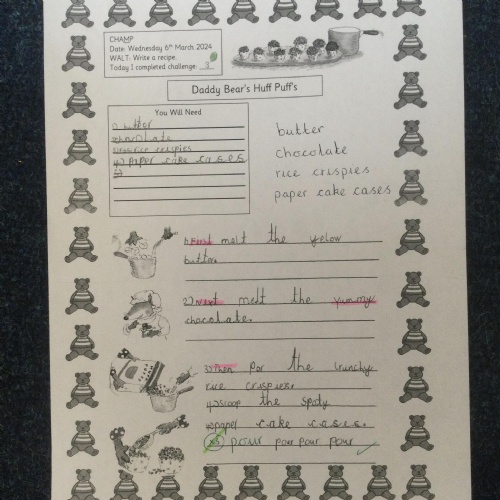 CHAMP
Date: Wednesday 6th March 2024
WALT: Write a recipe.
Today I completed challenge: 3
Daddy Bear's Huff Puff's
You Will Need
1) butter
chocolate
rice crispies
4) paper cake cases
5)
butter
chocolate
rice crispies
paper cake cases
1) First melt the yelow
butter.
2) Next melt the yummy
chocolate.
3) Then por the crunchy
rice crispies.
4) scoop the spoty
paper cake cases.
pour pour pour pour